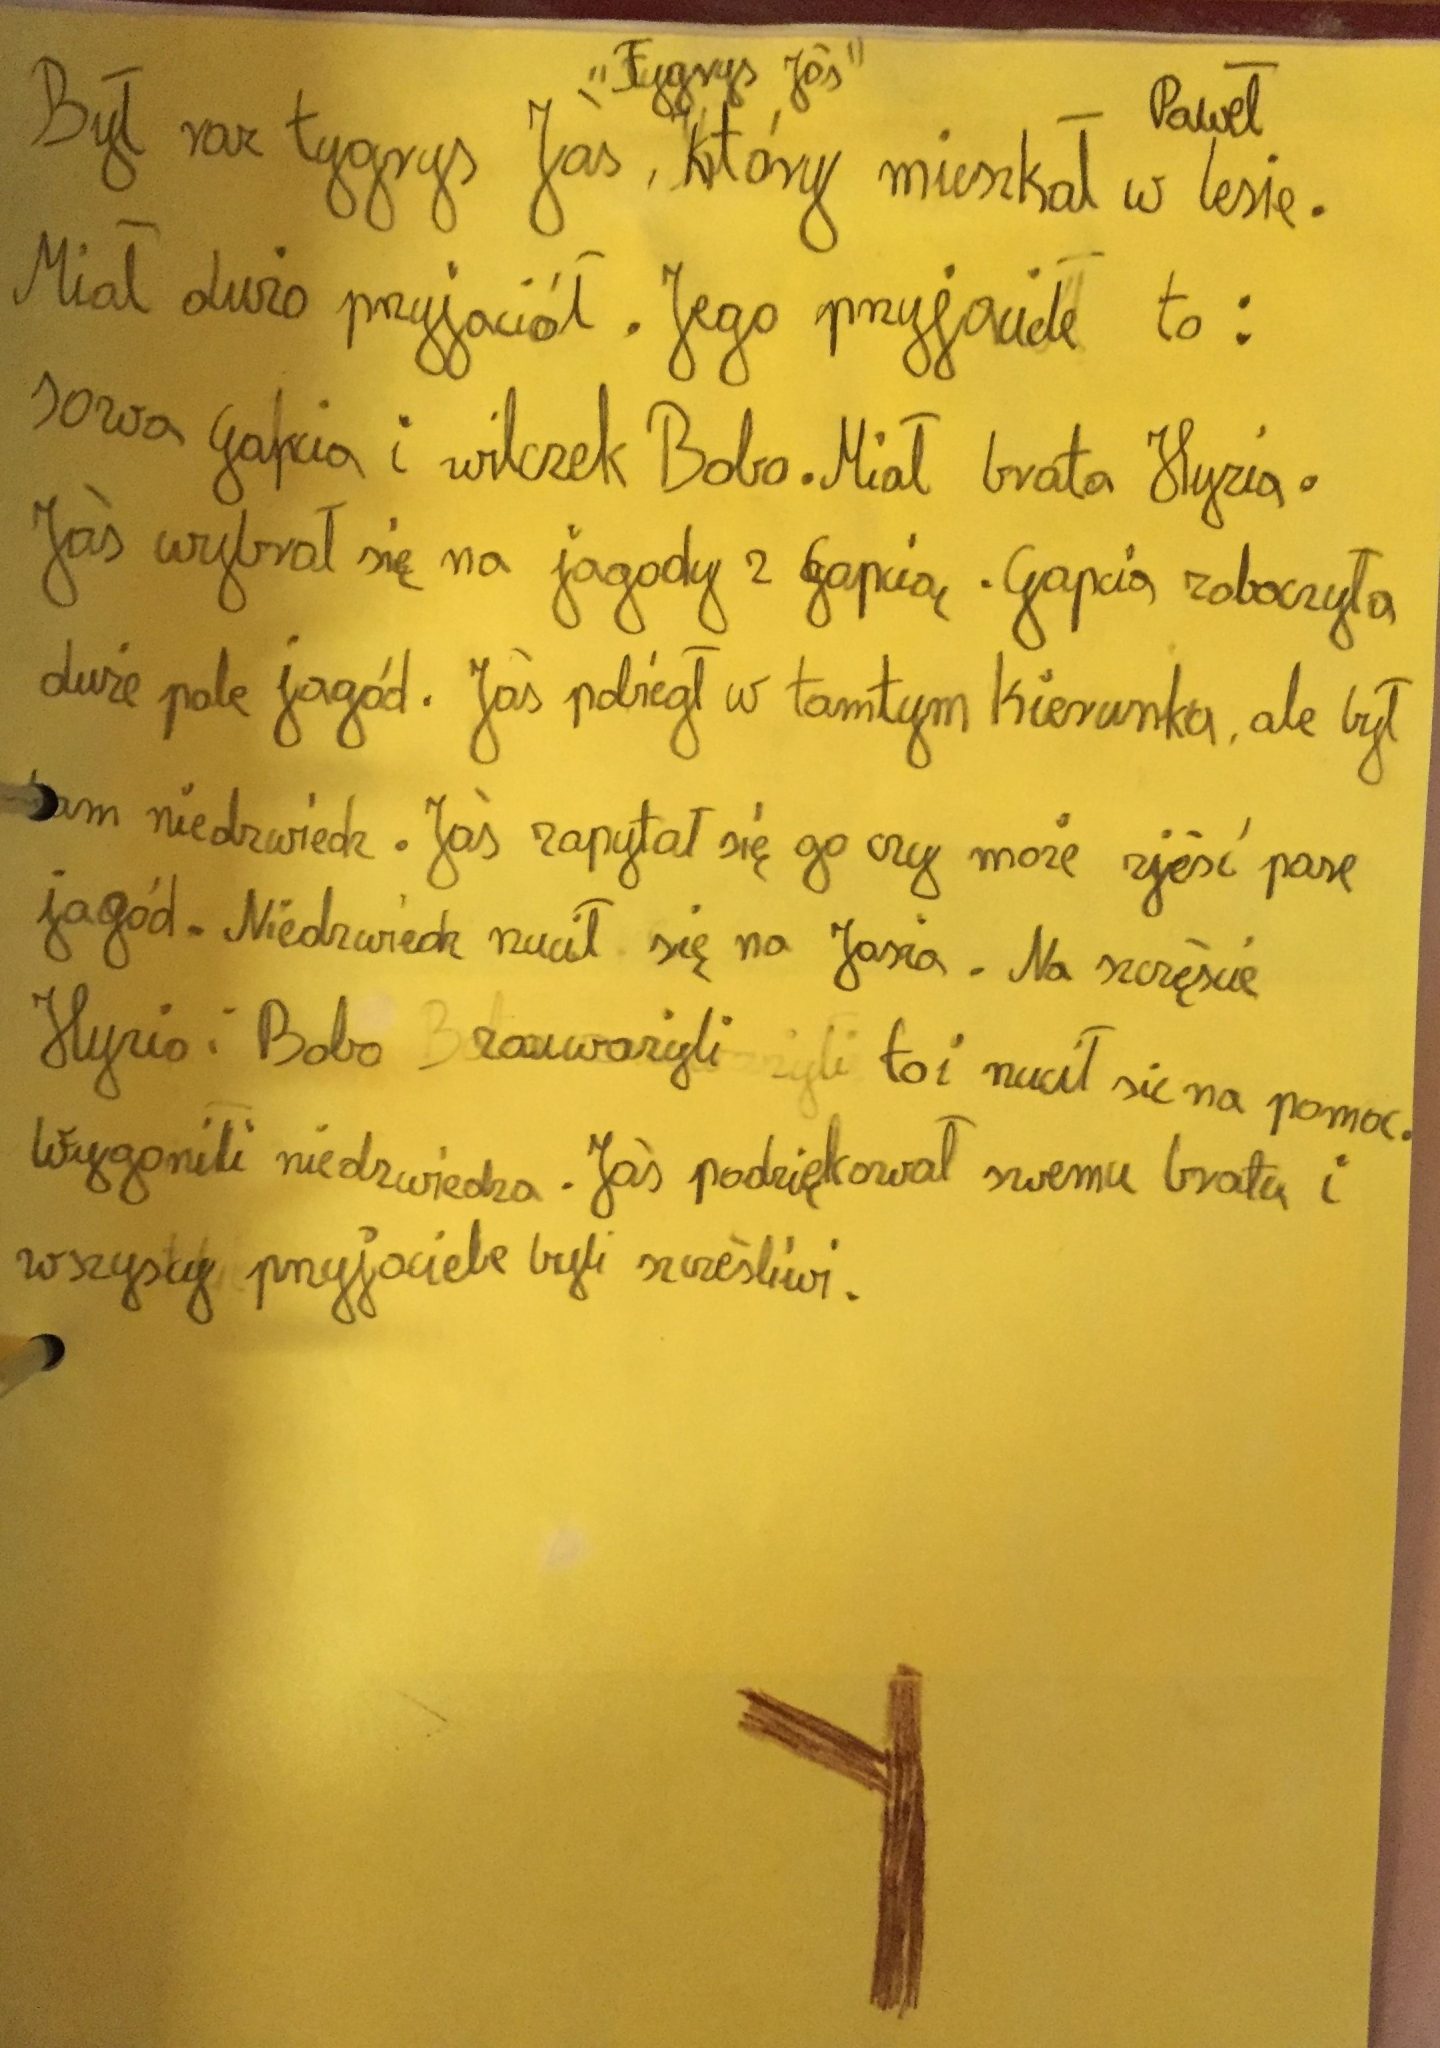 "Tygrys Jaś"
Paweł
Był raz tygrys Jaś, który mieszkał w lesie.
Miał dużo przyjaciół. Jego przyjaciele to:
sowa Gapcia i wilczek Bobo. Miał brata Hyzia.
Jaś wybrał się na jagody z Gapcią. Gapcia zobaczyła
duże pole jagód. Jaś pobiegł w tamtym kierunku, ale był
tam niedzwiedz. Jaś zapytał się go czy może zjeść parę
jagód. Niedzwiedz rzucił się na Jasia. Na szczęście
Hyzio i Bobo zauwarzyli to i rzucił sie na pomoc.
Wygonili niedzwiedza. Jaś podziękował swemu bratu i
wszyscy przyjaciele byli szcześliwi.